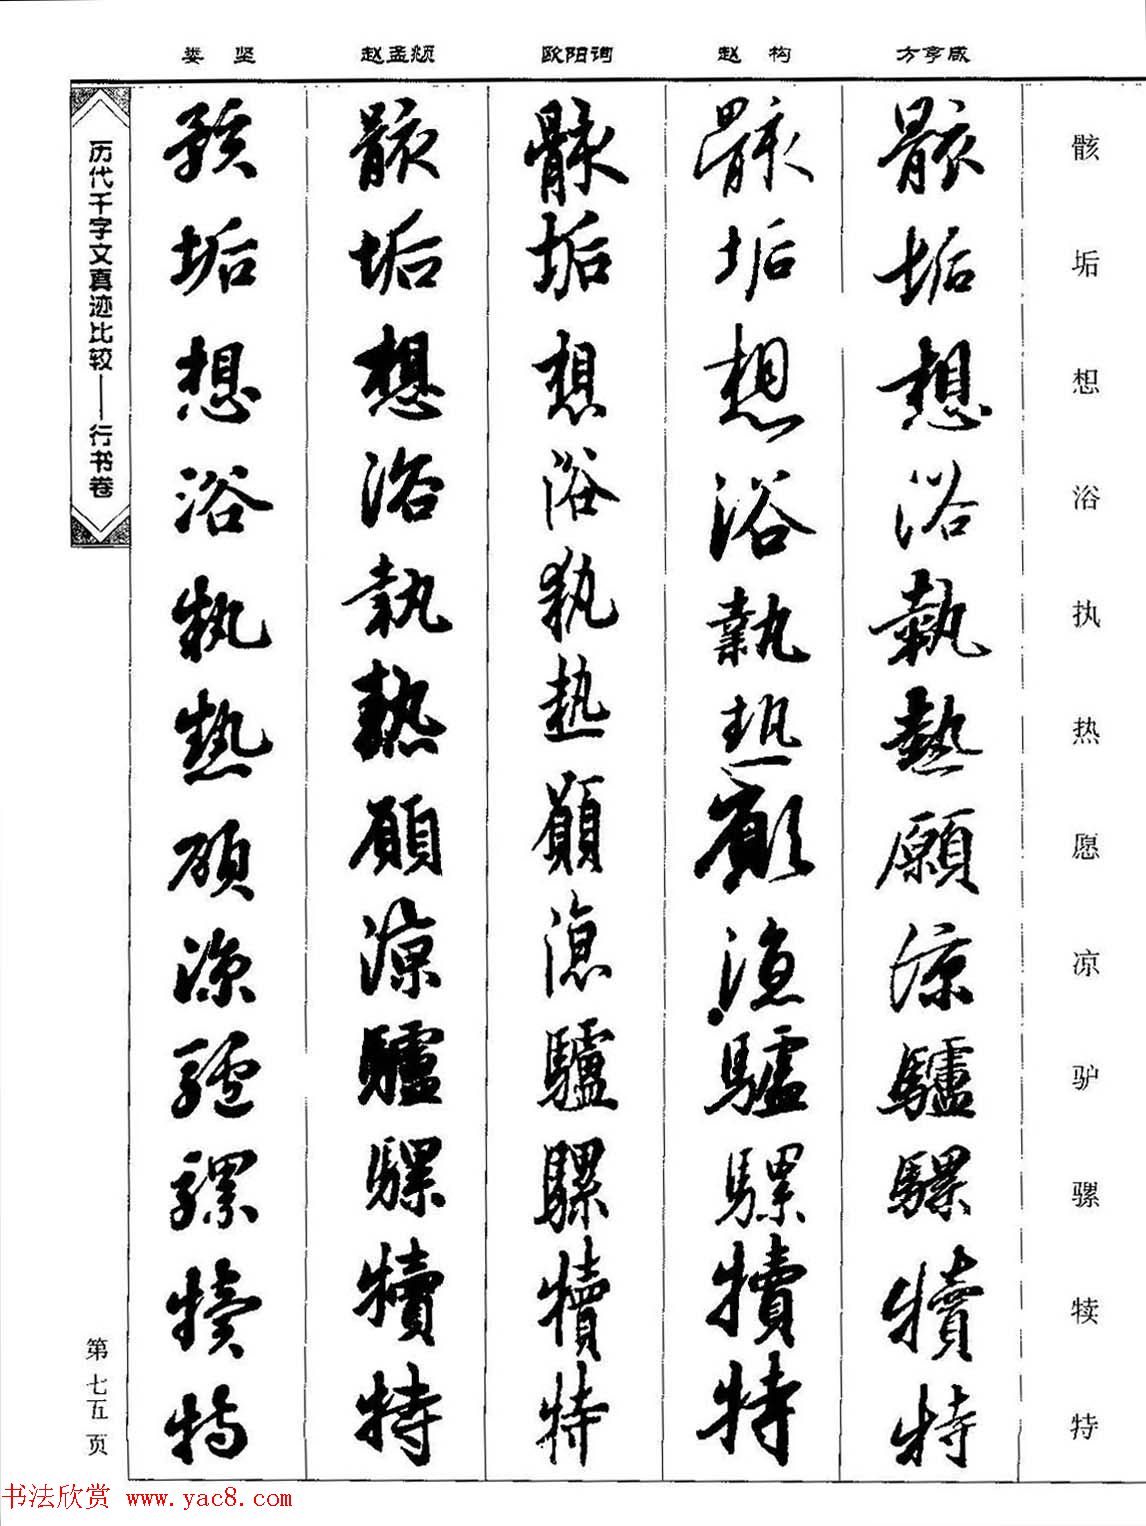 娄 坚 赵孟頫 欧阳询 赵 构 方亨咸
骸垢想浴执热愿凉驴骡犊特
骸垢想浴執熱願涼驢騾犢特
骸垢想浴執熱願涼驢騾犢特
骸垢想浴執熱願涼驢騾犢特
骸垢想浴執熱願涼驢騾犢特
骸垢想浴執熱願涼驢騾犢特
历代千字文真迹比较——行书卷
第七五页
书法欣赏 www.yac8.com